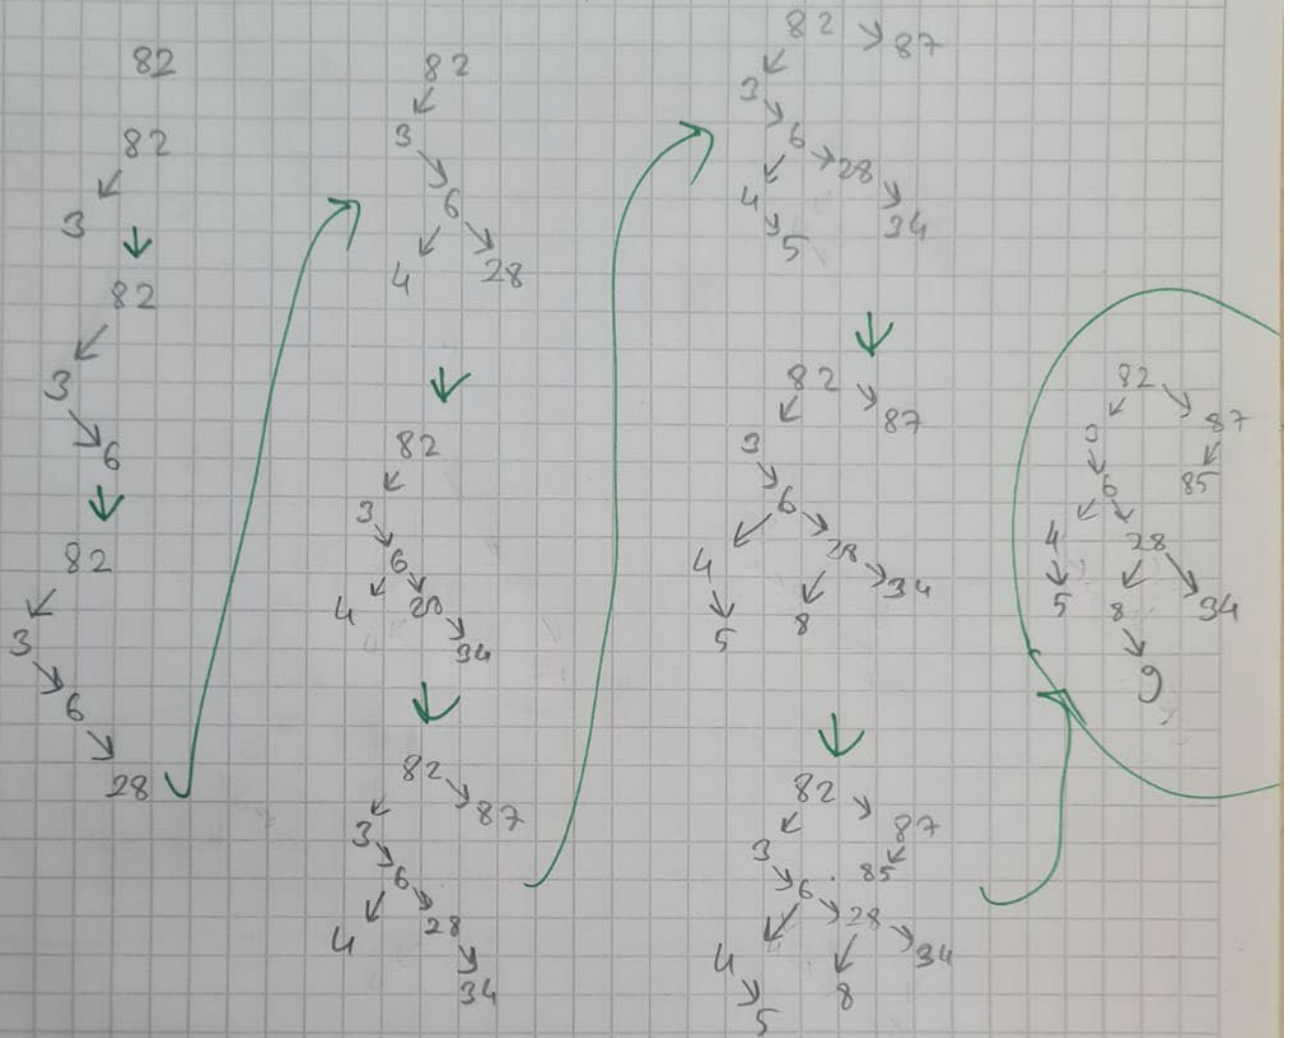 82
82
3
82
3
6
82
3
6
28
82
3
6
4 28
82
3
6
4 28
34
82
87
3
6
28
4
34
82 87
3
6
28
4
34
5
82
87
3
6
28
4
34
8
5
82
87
3
85
6
28
34
4
8
5
82
87
3
85
6
4 28
5 8 34
9